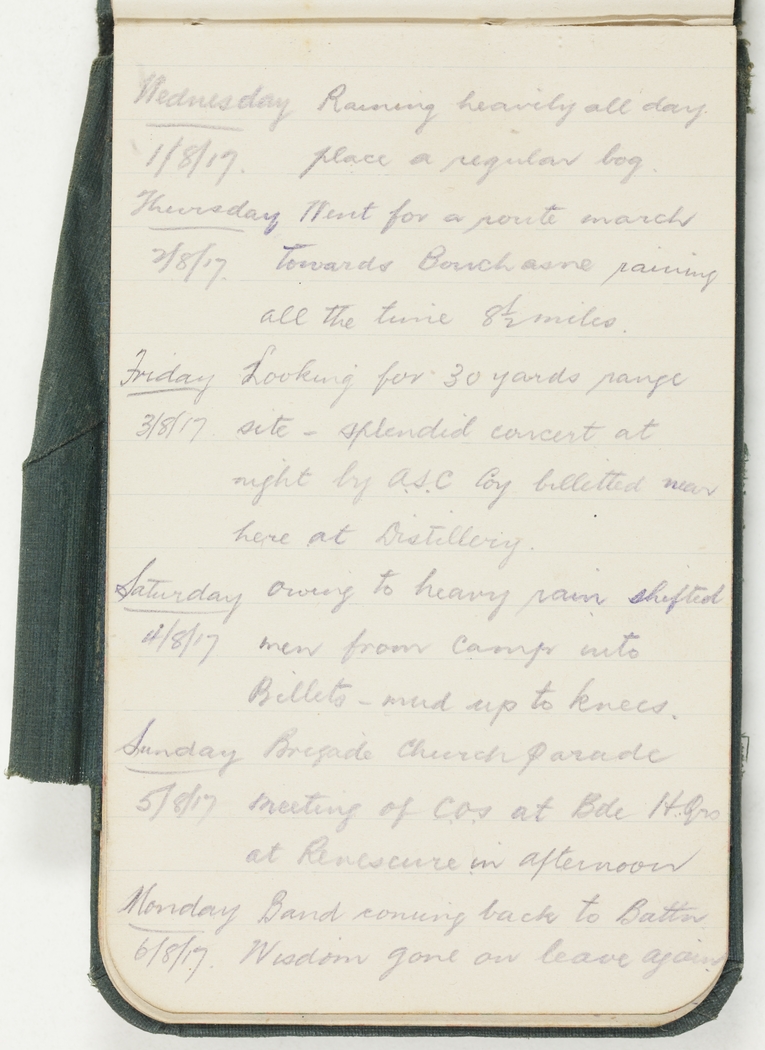 Wednesday Raining heavily all day.
1/8/17. place a regular bog.
Thursday Went for a route march
2/8/17. towards raining
all the time 8½ miles.
Friday Looking for 30 yards range
3/8/17 site - splendid concert at
night by A.S.C Coy billetted near
here at Distillery.
Saturday owing to heavy rain shifted
4/8/17 men from camp into
Billets - mud up to knees.
Sunday Brigade Church Parade
5/8/17 Meeting of COs at Bde H.Qrs
at Renescure in afternoon
Monday Band coming back to Battn
6/8/17. Wisdom gone on leave again